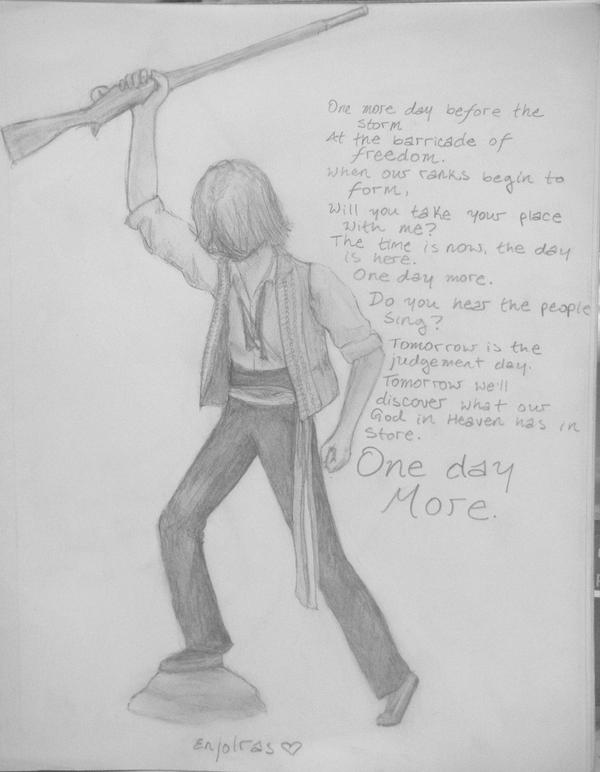 One more day before the
storm
At the barricade of
freedom.
When our ranks begin to
form,
Will you take your place
with me?
The time is now, the day
is here.
One day more.
Do you hear the people
Sing?
Tomorrow is the
judgement day.
Tomorrow we'll
discover what our
God in Heaven has in
Store.
One day
More.
Enjolras ♡